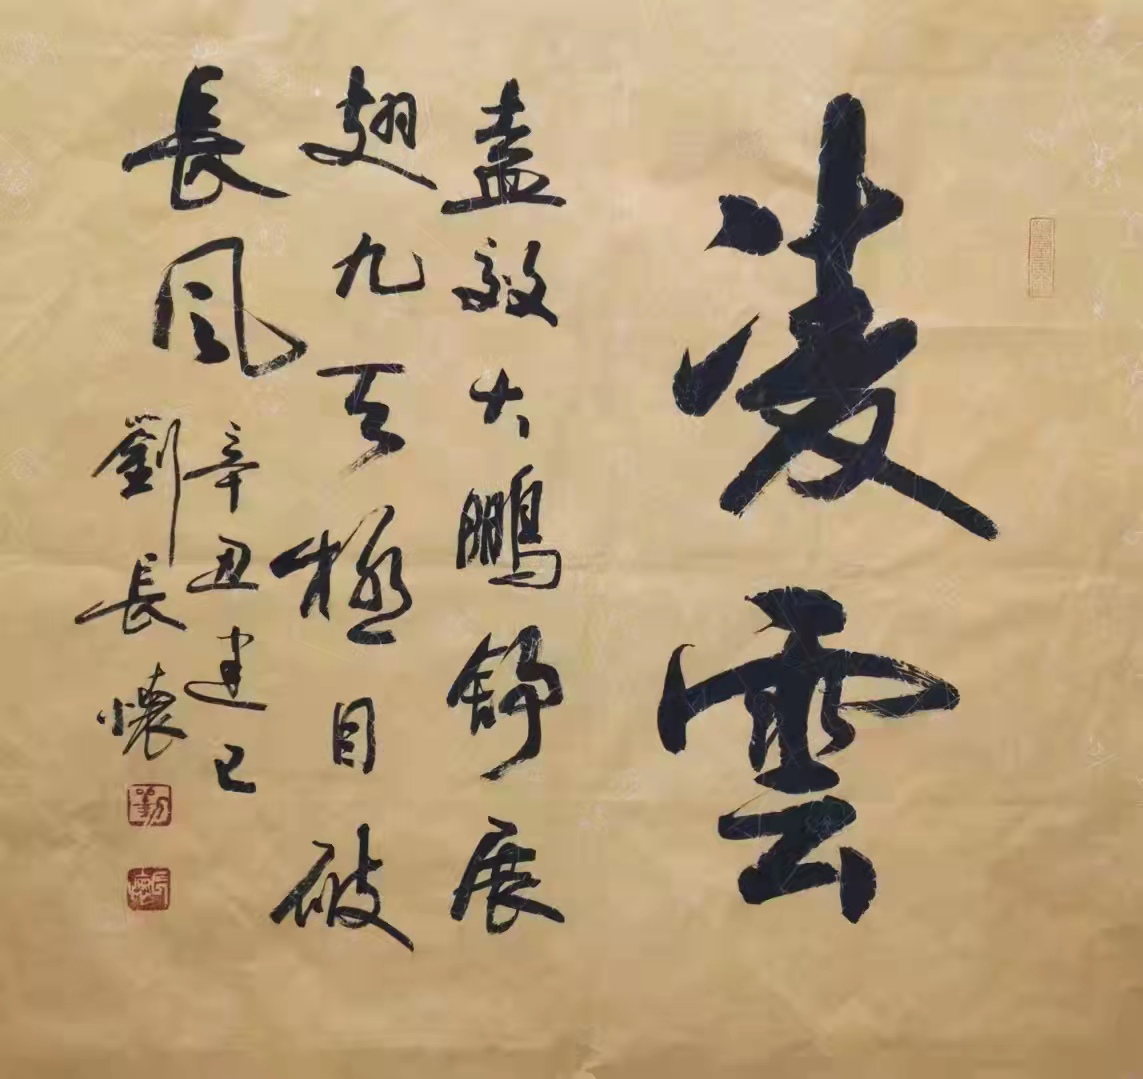 凌雲
盍效大鵬舒展
翅九天極目破
長風
辛丑建巳
劉長懷
劉
長懷